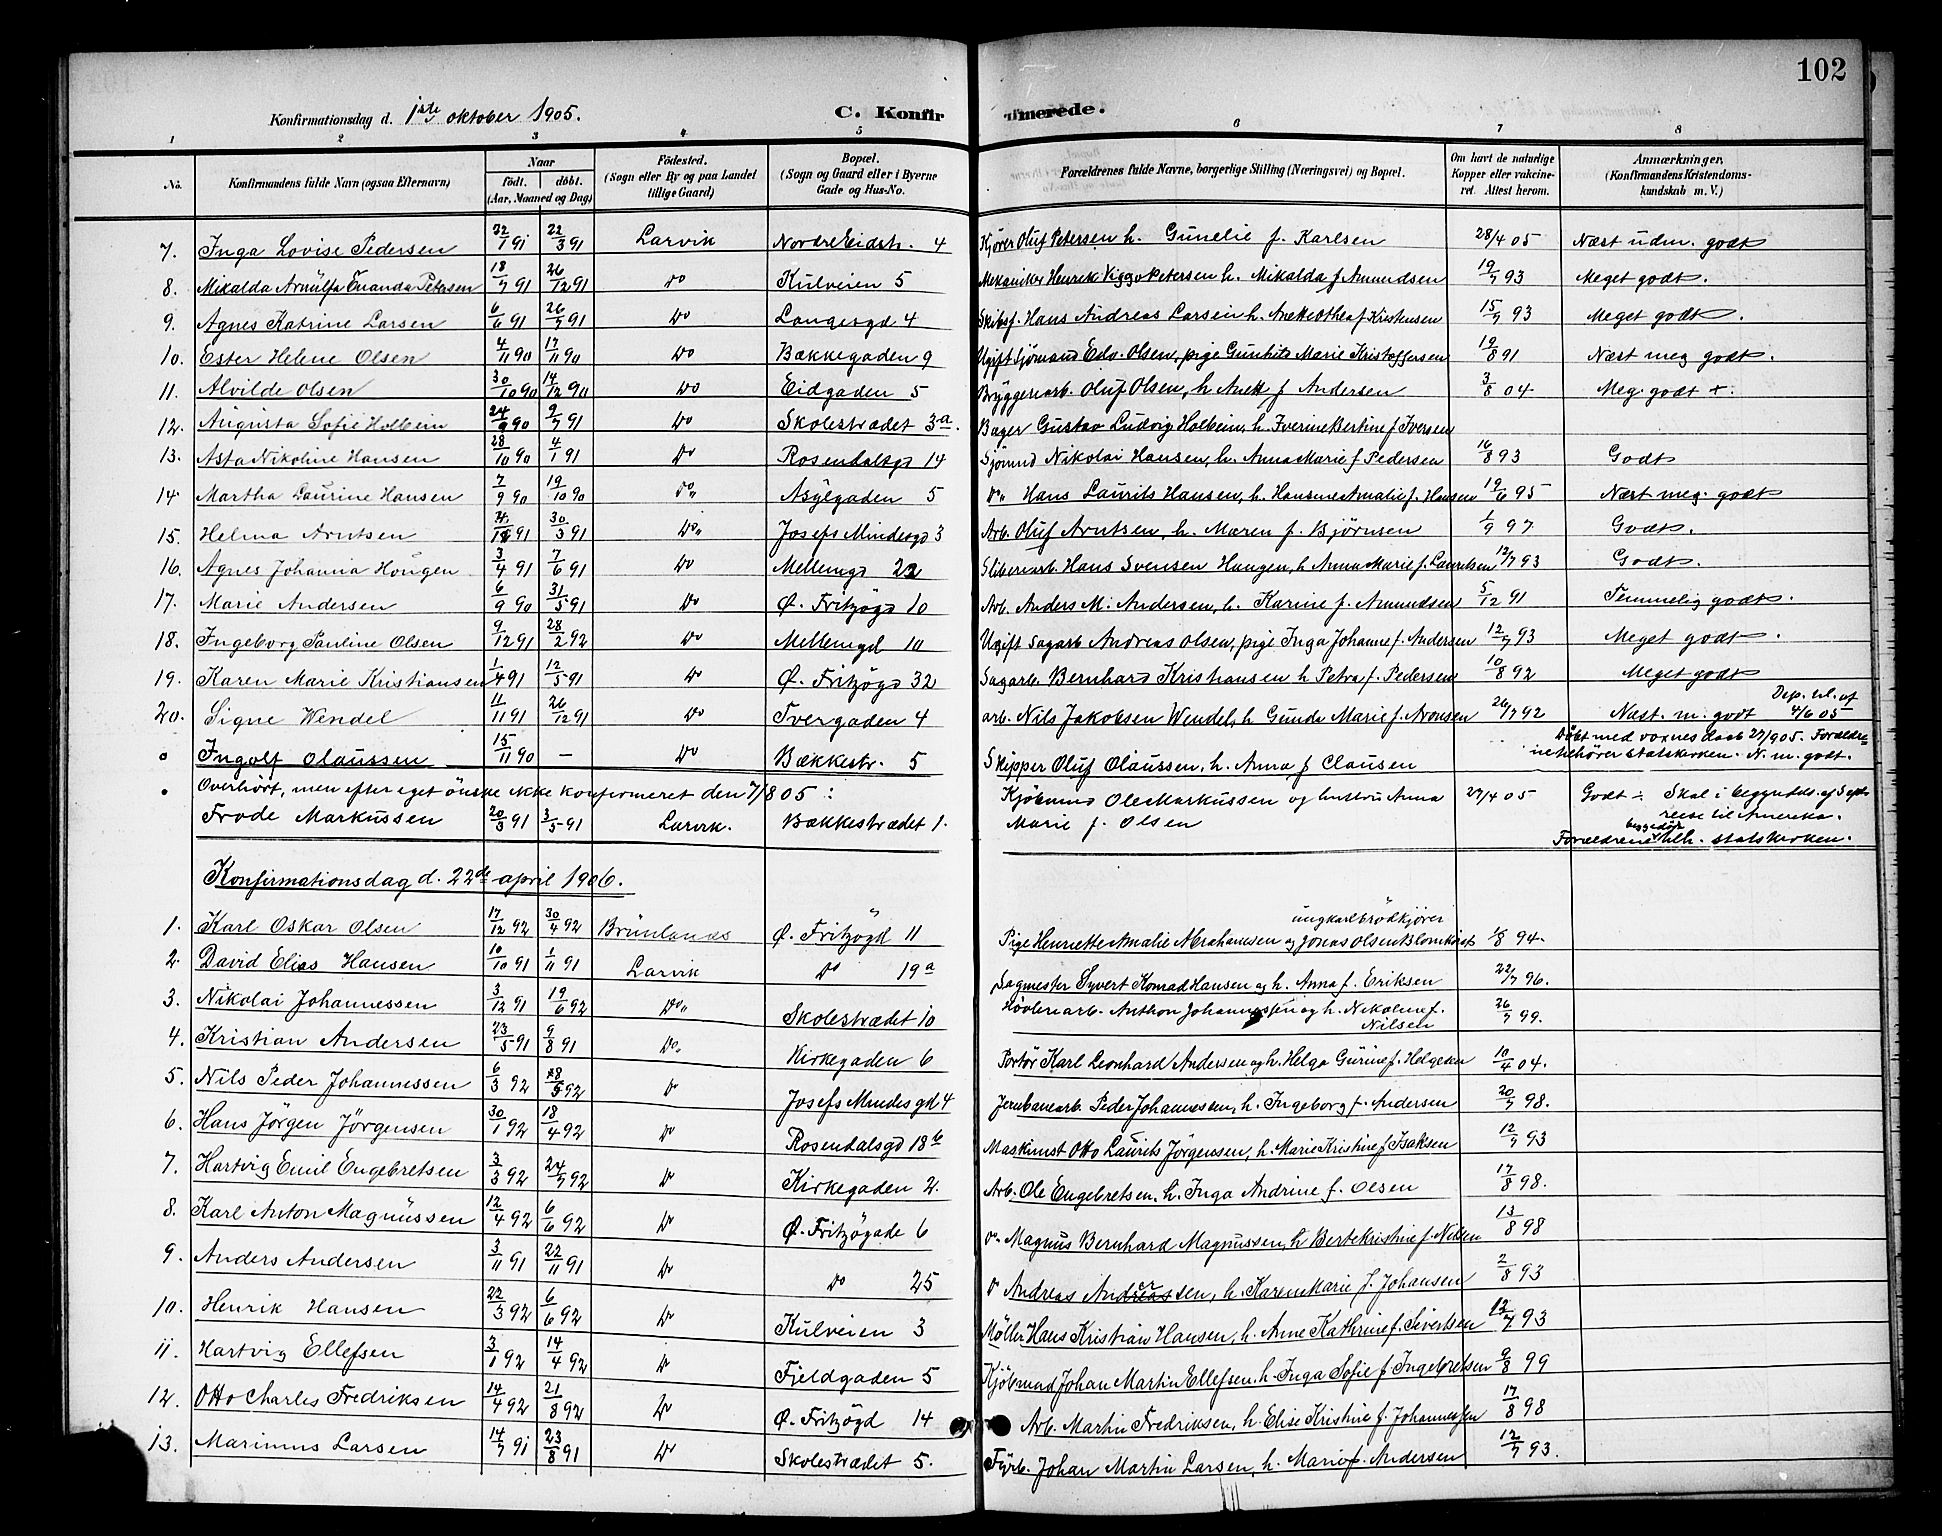 102
Konfirmationsdag d. 1ste oktober 1905. C. Konfirmerede.
1 2 3 4 5 6 7 8
No. Konfirmandens fulde Navn (ogsaa Efternavn) Naar födt. döbt. (Aar, Maaned og Dag) Födested. (Sogn eller By og paa Landet tillige Gaard) Bopæl. (Sogn og Gaard eller i Byerne Gade og Hus-No. Forældrenes fulde Navne, borgerlige Stilling (Næringsvei) og Bopæl. Om havt de naturlige Kopper eller vakcineret. Attest herom. Anmærkninger, (Konfirmandens Kristendomskundskab m. V.)
7. Inga Lovise Pedersen 22/1 91 22/3 91 Larvik Nordre Eidstr. 4 Kjører Oluf Petersen h. Gunelie f. Karlsen 28/4 05 Næst udm. godt
8. Mikalda Arnulfa Enanda Petersen 18/7 91 26/12 91 do Kulveien 5 Mekaniker Henrik Viggo Petersen h. Mikalda f Amundsen 19/7 93 Meget godt.
9. Agnes Katrine Larsen 6/6 91 26/7 91 Do Langesgd 4 Skibsf. Hans Andreas Larsen h. Anette Othea f Kristensen 15/7 93 Meget godt.
10. Ester Helene Olsen 4/11 90 17/11 90 Do Bækkegaden 9 Ugift Sjömand Edv. Olsen, pige Gunhild Marie Kristoffersen 19/8 91 Næst meg godt.
11. Alvilde Olsen 30/10 90 14/12 90 Do Eidgaden 5 Bryggeriarb. Oluf Olsen, h Anett f Andersen 3/8 04 Meg. godt +.
12. Augusta Sofie Holbein 24/9 90 9/7 91 Do Skolestrædet 3a. Bager Gustav Ludvig Holbein, h. Iverine Bertine f Iversen
13. Asta Nikoline Hansen 28/10 90 4/1 91 Do Rosendalsgd 14 Sjömnd Nikolai Hansen, h. Anna Marie f Pedersen 16/8 93 Godt
14. Martha Laurine Hansen 7/9 90 19/10 90 Do„ Asylgaden 5 Do„ Hans Laurits Hansen, h. Hansine Amalie f. Hansen 19/6 95 Næst meg. godt
15. Helma Arntsen 91 30/3 91 Do„ Josefs Mindesgd 3 Arb. Oluf Arntsen, h. Maren f. Bjørnsen 1/9 97 Godt.
16. Agnes Johanna Höugen 3/4 91 7/6 91 Do Mellemgd 22 Sliberiarb. Hans Svensen Haugen, h Anna Marie f. Lauritsen 12/7 93 Godt.
17. Marie Andersen 6/9 90 31/5 91 Do Ø. Fritzögd 10 Arb. Anders M. Andersen, h. Karine f. Amundsen 5/12 91 Temmelig godt.
18. Ingeborg Pauline Olsen 9/12 91 28/2 92 Do Mellemgd 10 Ugift Sagarb Andreas Olsen, pige Inga Johanne f. Andersen 12/7 93 Meget godt.
19. Karen Marie Kristiansen 1/4 91 12/5 91 Do Ø. Fritzögd 32 Sagarb. Bernhard Kristiansen h Petra f. Pedersen 10/8 92 Meget godt
20. Signe Wendel 11/11 91 26/12 91 Do Tvergaden 4 arb. Nils Jakobsen Wendel, h Gunda Marie f. Aronsen 26/7 92 Næst. m. godt Disp. til. af 4/6 05
o Ingolf Olaussen 15/11 90 — Do Bækkestr. 5 Skipper Oluf Olaussen, h. Anna f Clausen Döbt med voxnes daab 27/9 05. Forældrene tilhörer statskirken. N. m. godt.
o Overhört, men efter eget önske ikke konfirmeret den 7/8 05:
Frode Markussen 20/3 91 3/5 91 Larvik. Bækkestrædet 1. Kjöbmnd Ole Markussen og hustru Anna Marie f. Olsen 27/4 05 Godt ÷. Skal i begyndels. af Septr reise til Amerika. Forældrene begge döpt tilh. statskirken.
Konfirmationsdag d. 22de april 1906.
1. Karl Oskar Olsen 17/12 92 30/4 92 Brunlanes Ø. Fritzögd 11 Pige Henriette Amalie Abrahamsen og ungkarl brödkjörer Jonas Olsen Blomkvist 8 94.
2. David Elias Hansen 10/10 91 1/11 91 Larvik Do 19a Sagmester Syvert Konrad Hansen og h. Anna f. Eriksen 22/7 96.
3. Nikolai Johannessen 3/12 91 19/6 92 Do„ Skolestrædet 10 Høvleriarb. Anthon Johannessen og h. Nikoline f. Nilsen 26/7 99.
4. Kristian Andersen 23/5 91 9/8 91 Do„ Kirkegaden 6 Portör Karl Leonhard Andersen og h. Helga Gurine f. Helgesen 10/4 04.
5. Nils Peder Johannessen 6/3 92 8/5 92 Do Josefs Mindes gd 4 Jernbanearb. Peder Johannessen, h. Ingeborg f. Andersen 20/7 98.
6. Hans Jörgen Jörgensen 30/1 92 18/4 92 Do Rosendalsgd 18b Maskinist Otto Laurits Jörgensen, h. Marie Kristine f Isaksen 12/7 93
7. Hartvig Emil Engebretsen 3/3 92 24/7 92 Do Kirkegaden 2. Arb. Ole Engebretsen. h. Inga Andrine f. Olsen 17/8 98.
8. Karl Anton Magnussen 12/4 92 6/6 92 Do Ø. Fritzögade 6 Do Magnus Bernhard Magnussen, h Berte Kristine f. Nilsen 13/8 98
9. Anders Andersen 3/11 91 22/11 91 Do Do 25 Do Andreas Andersen, h. Karen Marie f. Johansen 2/8 93
10. Henrik Hansen 22/3 92 6/6 92 Do Kulveien 3 Møller Hans Kristian Hansen, h. Anne Kathrine f. Sivertsen 12/7 93
11. Hartvig Ellefsen 3/1 92 14/4 92 Do Fjeldgaden 5 Kjöbmnd Johan Martin Ellefsen, h. Inga Sofie f Ingebretsen 9/8 99
12. Otto Charles Fredriksen 14/4 92 21/8 92 Do Ø. Fritzögd 14 Arb. Martin Fredriksen, h. Elise Kristine f. Johannessen 17/8 98
13. Marinus Larsen 14/7 91 23/8 91 Do Skolestrædet 5. Fyrb. Johan Martin Larsen, h. Marie f. Andersen 12/7 93.